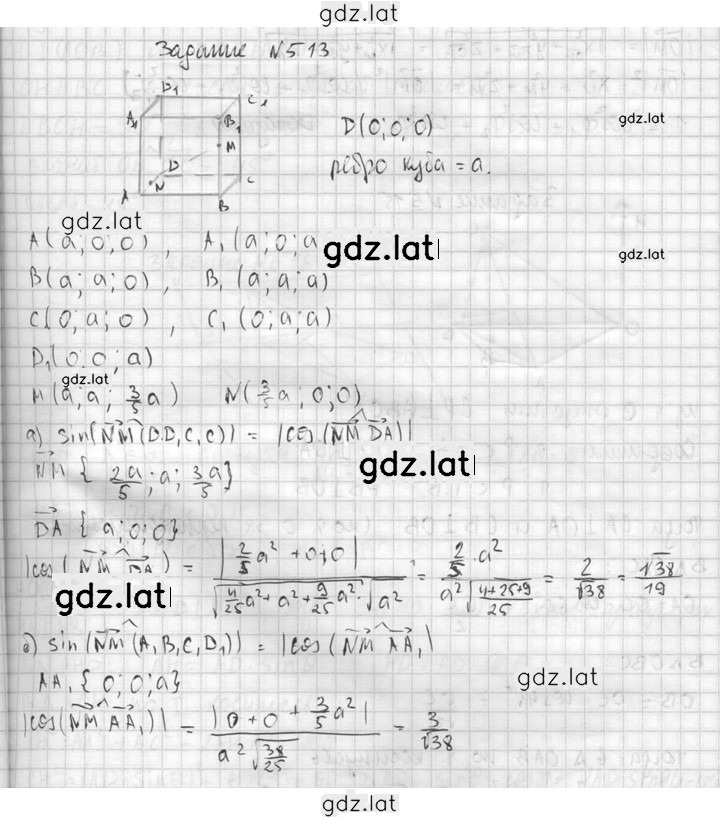 gdz.lat
Задание №513
D1 C1
A1 B1
M
D
N C
A B
D(0;0;0)
ребро куба = a.
gdz.lat
gdz.lat
A(a;0;0), A1(a;0;a
gdz.lat
gdz.lat
B(a;a;0), B1(a;a;a)
C(0;a;0), C1(0;a;a)
D1(0;0;a)
gdz.lat
M(a;a;3/5a) N(3/5a;0;0)
а) sin(NM^(DD1C1C)) = |cos(NM^DA)|
gdz.lat
NM {2a/5; a; 3a/5}
DA {a;0;0}
|cos(NM^DA) = |2/5a² + 0+0| / √(4/25a² + a² + 9/25a²)·√a² = 2/5·a² / a²√((4+25+9)/25) = 2/√38 = √38/19
gdz.lat
б) sin(NM^(A1B1C1D1)) = |cos(NM^AA1|
AA1{0;0;a}
gdz.lat
|cos(NM^AA1)| = |0+0+3/5a²| / a²√(38/25) = 3/√38
gdz.lat